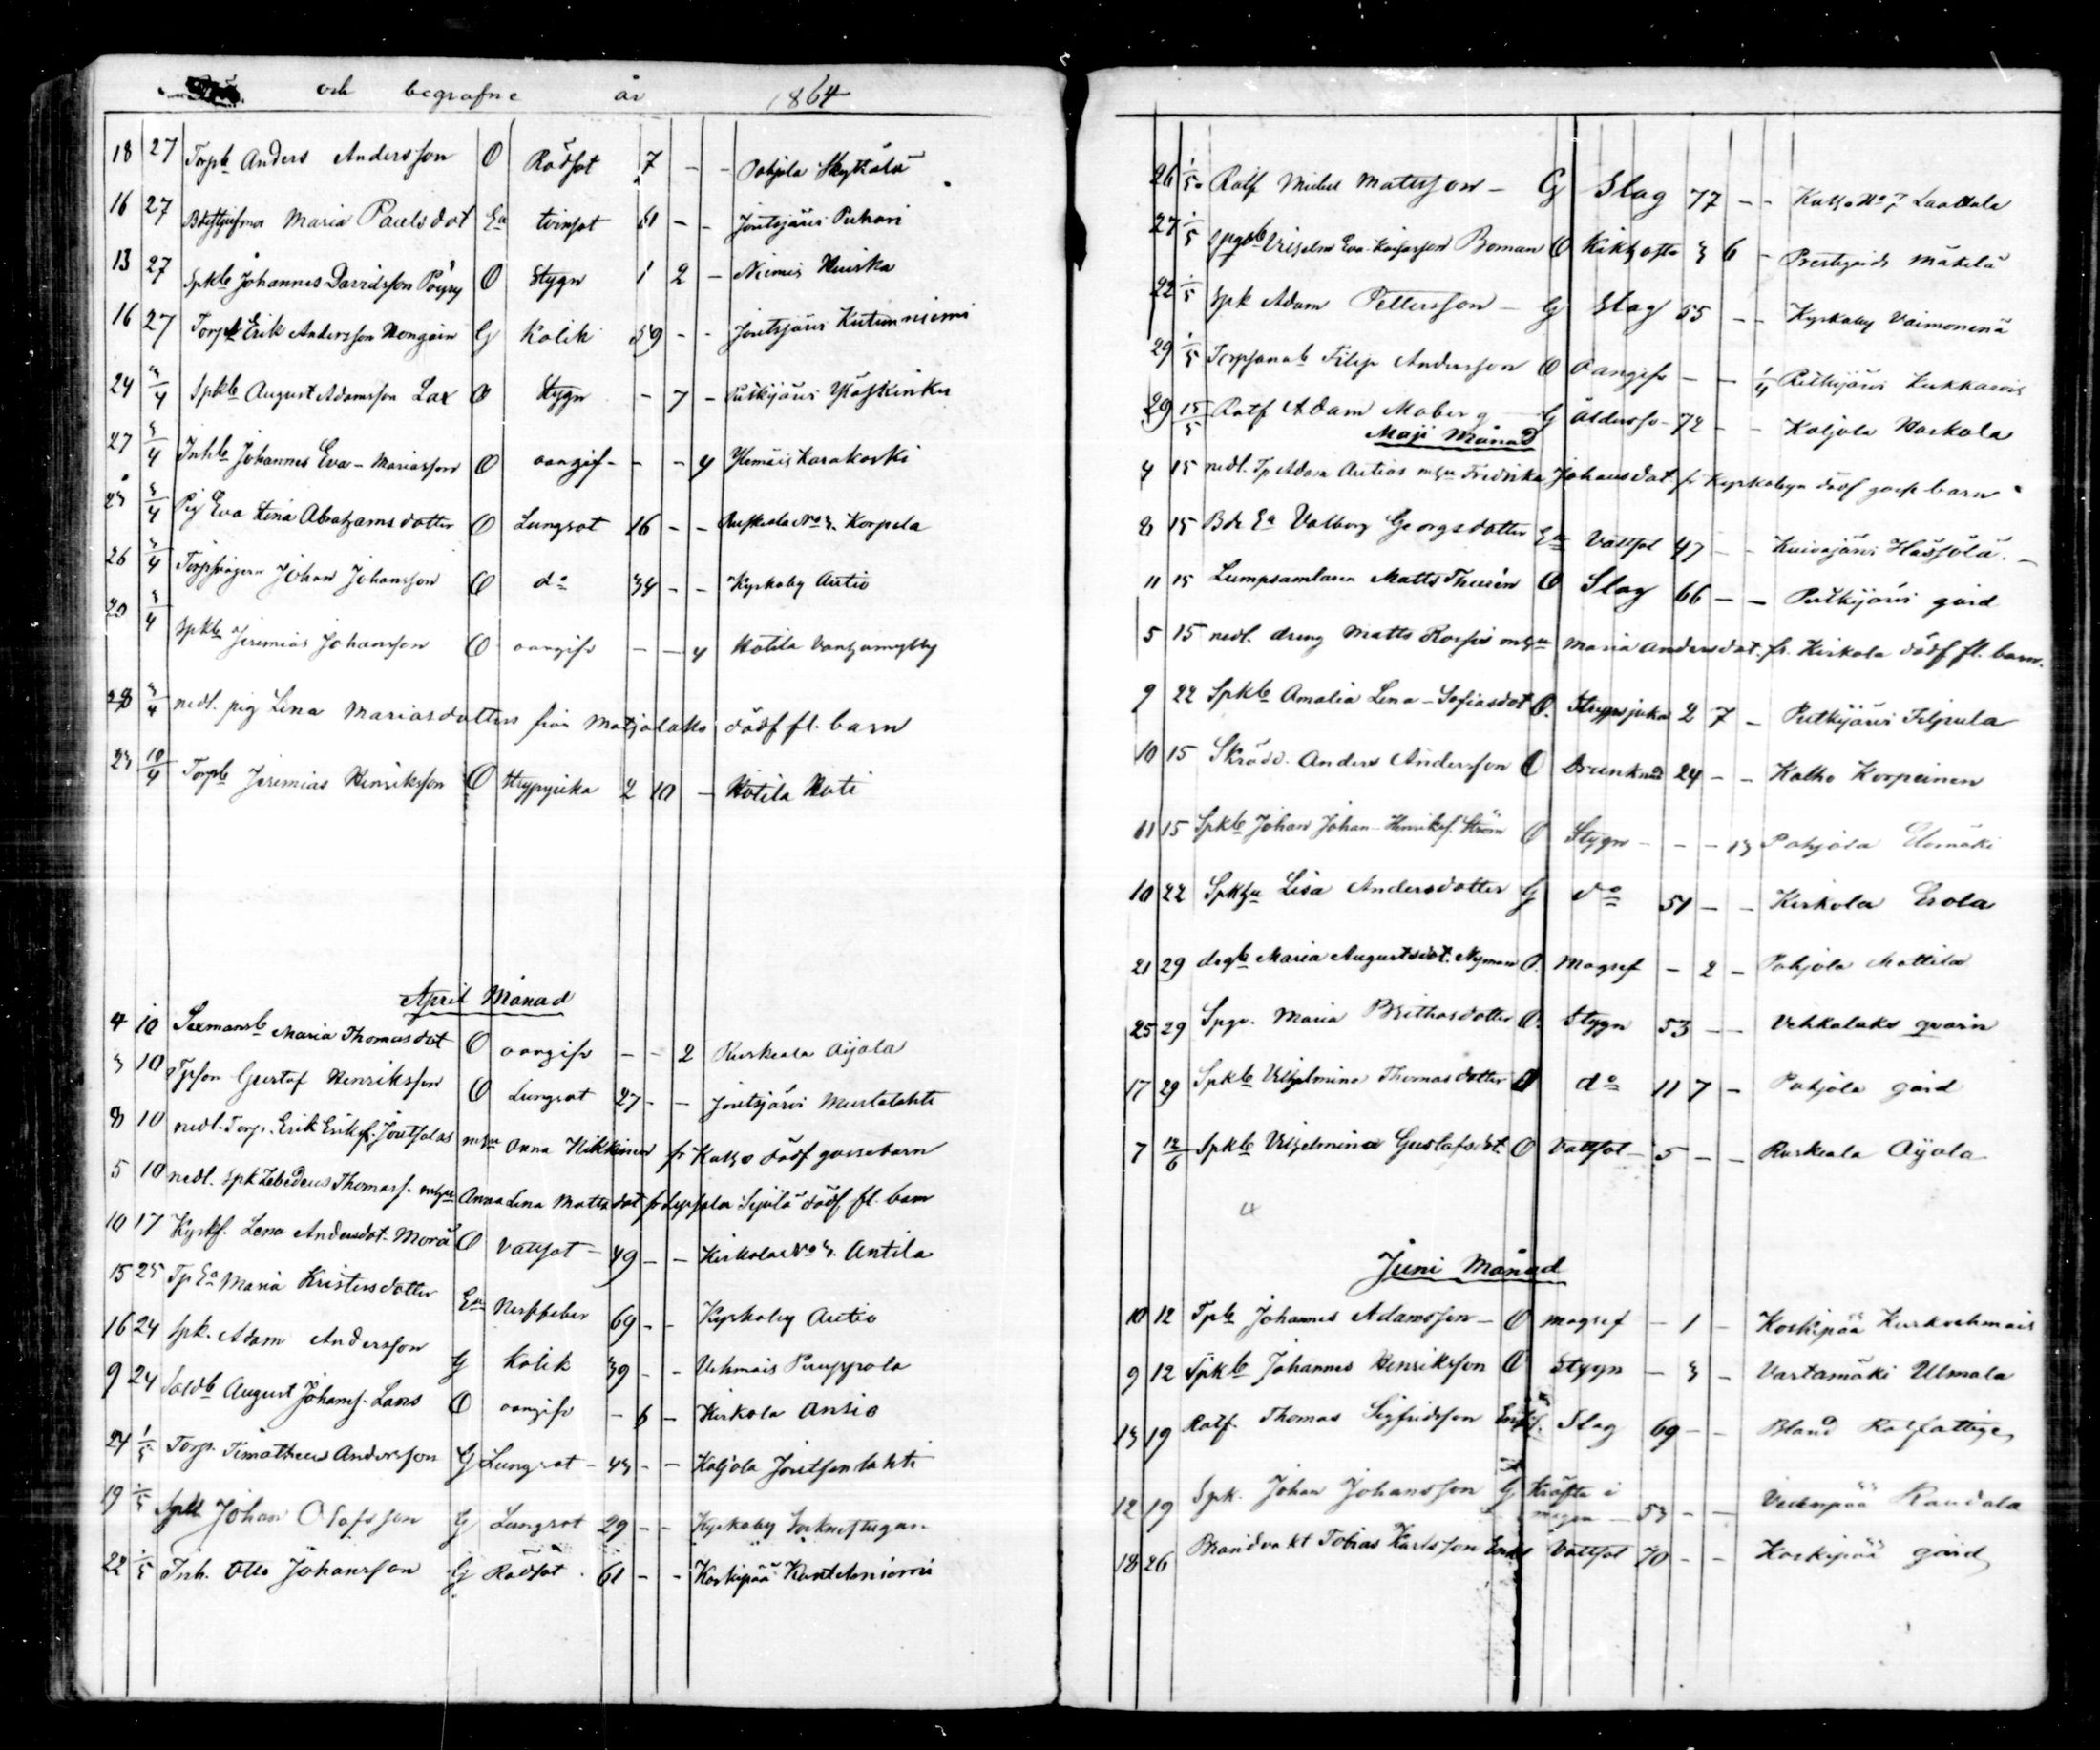 och begrafne år 1864
18 27 Torpb Anders Andersson O Rödsot 7 - - Pohjola Skyttälä
16 27 Maria Paulsdot Ea tvinsot 51 - - Joutsjärvi Puhari
13 27 Spkb Johannes Davidsson Pöysy O Stygn 1 2 - Niemis Huiska
16 27 Torp Erik Andersson Hongain G Kolik 59 - - Joutsjärvi Kutumniemi
24 3/4 Spkb August Adamsson Lax O Stygn - 7 - Putkijärvi
27 3/4 Inhb Johannes Eva-Mariasson O oangif - - 4 Karakoski
23 3/4 Pig Eva Stina Abrahamsdotter O Lungsot 16 - - Ruskeala No 3. Korpela
26 3/4 Johan Johansson O do 34 - - Kyrkoby Autio
20 3/4 Spkb Jeremias Johansson O oangifv - - 4 Hotila
28 3/4 nedl. pig Lina Mariasdotters från Matjalaks dödf fl. barn
23 10/4 Torpb Jeremias Henriksson O Strypsjuka 2 10 - Hotila Hoti
April Månad
4 10 Sexmansb Maria Thomasdot O oangifv - - 2 Ruskeala Äijälä
3 10 Tpson Gustaf Henriksson O Lungsot 27 - - Joutsjärvi Mustalahti
8 10 nedl. Torp. Erik Eriksf. Joutsalas mhu Anna Hikkinen fr Katho dödf gossebarn
5 10 nedl. Spk Zebedeus Thomasf. mhu Anna Lina Mattsdot fr Leppälä Sipilä dödf fl. barn
10 17 Lena Andersdot. Morä O Vattsot - 49 - - Kirkola No 3. Antila
15 25 Tp Ea Maria Kristersdotter Ea Nerffeber 69 - - Kyrkoby Autio
16 24 Spk. Adam Andersson G Kolik 39 - - Uckmais Piruppola
9 24 Soldb August Johansf. Lans O oangifv - 6 - Kirkola Ansio
24 1/5 Torp. Timotheus Andersson G Lungsot - 43 - - Koljola Joutsenlahti
19 1/5 Johan Olofsson G Lungsot 29 - - Kyrkoby Sockenstugan
22 1/5 Inh. Otto Johansson G Rödsot 61 - - Koskipää Kontolaniemi
26 1/5 Rotf Michel Mattsson - G Slag 77 - - Katho No 7 Laattala
27 1/5 Vilhelm Eva-Kaisasson Boman O Kikhosta 3 6 - Prestgårds Mäkelä
22 1/5 Spk Adam Pettersson - G Slag 55 - - Kyrkoby Vaimonena
29 1/5 Filip Andersson O Oangifv - - 1/4 Putkijärvi Lukkarois
29 15/5 Rotf Adam Moberg - G ålderssv - 72 - - Koljola Harkola
Maji Månad
4 15 nedl. Tp Adam Autios mhu Fredrika Johansdot fr Kyrkobyn dödf goss barn
8 15 Bde Ea Valborg Georgsdotter Ea Vattsot 47 - - Kuivajärvi Hassola. -
11 15 Lumpsamlaren Matts Thusin O Slag 66 - - Putkijärvi gård
5 15 nedl. dreng Matts Rossis mhu Maria Andersdot. fr. Kirkola dödf fl. barn.
9 22 Spkb Amalia Lena-Sofiasdot O. Strypsjuka 2 7 - Putkijärvi Filpula
10 15 Skrädd. Anders Andersson O Drunknad 24 - - Katho Korpeinen
11 15 Spkb Johan Johan-Henriksf. Ström O Stygn - - - 13 Pohjola Elomäki
10 22 Spkhu Lisa Andersdotter G do 51 - - Kirkola Erola
21 29 drgb Maria Augustsdot. Nyman O. Magref - 2 - Pohjola Mattila
25 29 Spqv. Maria Brithasdotter O. Stygn 53 - - Vehkalaks qvarn
17 29 Spkb Vilhelmina Thomasdotter O do 11 7 - Pohjola gård
7 12/6 Spkb Vilhelmina Gustafsdot. O Vattsot - 5 - - Ruskeala Äijälä
4
Juni Månad
10 12 Tpb Johannes Adamsson - O magref - 1 - Koskipää Kurkvehmais
9 12 Spkb Johannes Henriksson O Stygn - 3 - Vartamäki Ulmala
13 19 Rotf. Thomas Sigfridsson Enkl. Slag 69 - - Bland Rotfattige
12 19 Spk. Johan Johansson G Kräfta i magen - 53 - - Vedenpää Raudala
18 26 Brandvakt Tobias Karlsson Enkl Vattsot 70 - - Koskipää gård